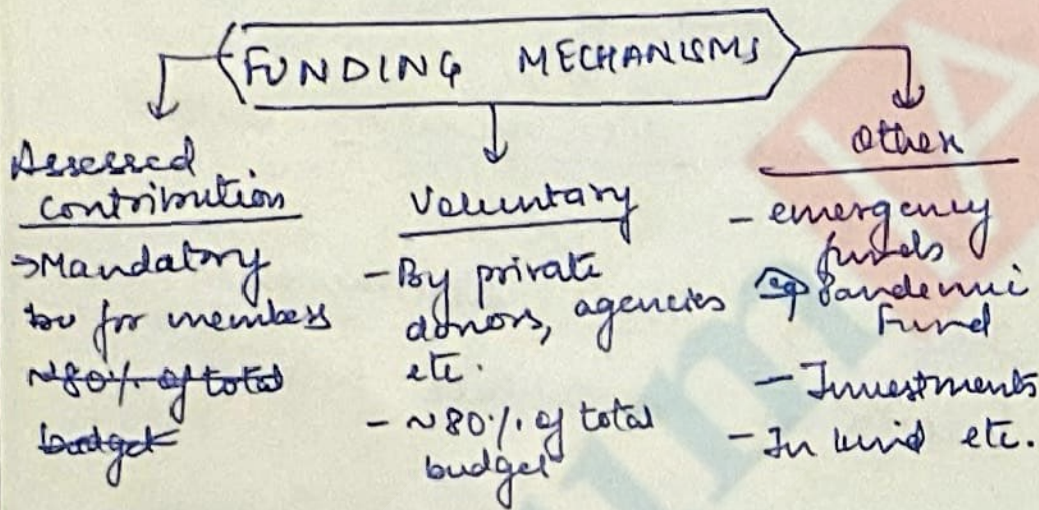 FUNDING MECHANISMS
Assessed
contribution
→Mandatory
for members
~80% of total
budget
Voluntary
- By private
donors, agencies
etc.
- ~80% of total
budget
Other
- emergency
funds
eg Pandemic
Fund
- Investments
- In kind etc.